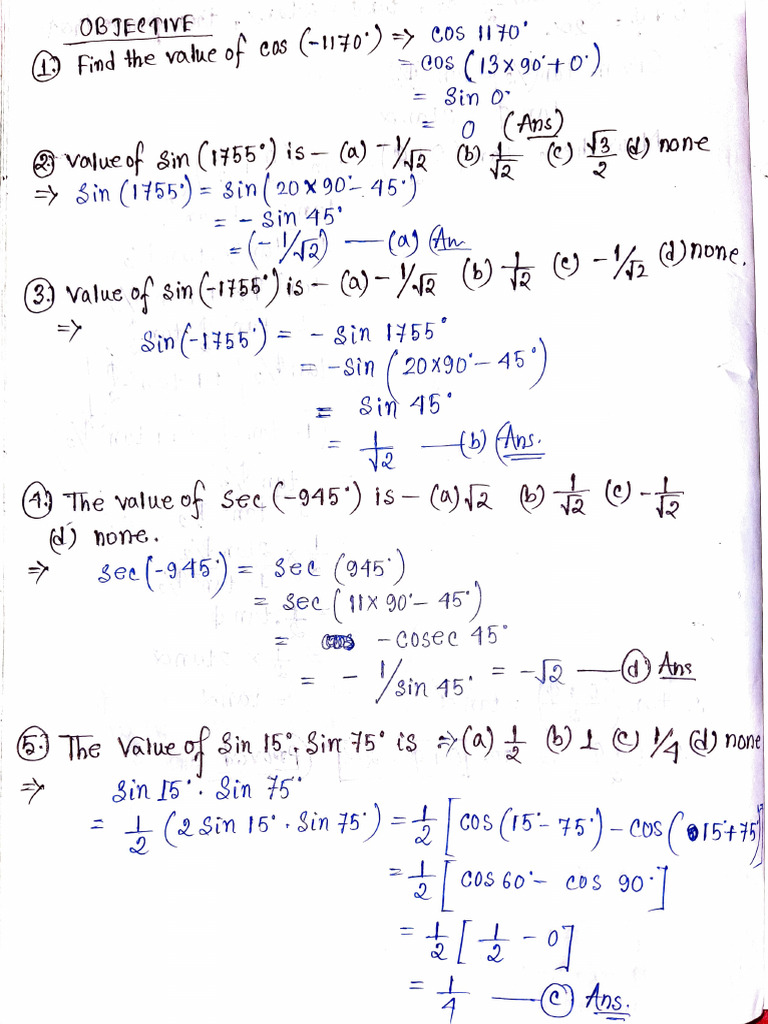 OBJECTIVE
1. Find the value of cos (-1170°) => cos 1170°
= cos (13 × 90° + 0°)
= sin 0°
= 0 (Ans)
2. Value of sin (1755°) is — (a) -1/√2 (b) 1/√2 (c) √3/2 (d) none
=> sin (1755°) = sin (20 × 90° - 45°)
= - sin 45°
= (-1/√2) — (a) (An
3. Value of sin (-1755°) is — (a) -1/√2 (b) 1/√2 (c) -1/√2 (d) none.
=> sin (-1755°) = - sin 1755°
= -sin (20×90° - 45°)
= sin 45°
= 1/√2 — (b) (Ans.
4. The value of sec (-945°) is — (a) √2 (b) 1/√2 (c) -1/√2
(d) none.
=> sec (-945°) = sec (945°)
= sec (11 × 90° - 45°)
= - cosec 45°
= - 1/sin 45° = -√2 — (d) Ans
5. The value of sin 15°. sin 75° is => (a) 1/2 (b) 1 (c) 1/4 (d) none
=> sin 15°. sin 75°
= 1/2 (2 sin 15°. sin 75°) = 1/2 [cos (15° - 75°) - cos (15° + 75°)]
= 1/2 [cos 60° - cos 90°]
= 1/2 [1/2 - 0]
= 1/4 — (c) Ans.